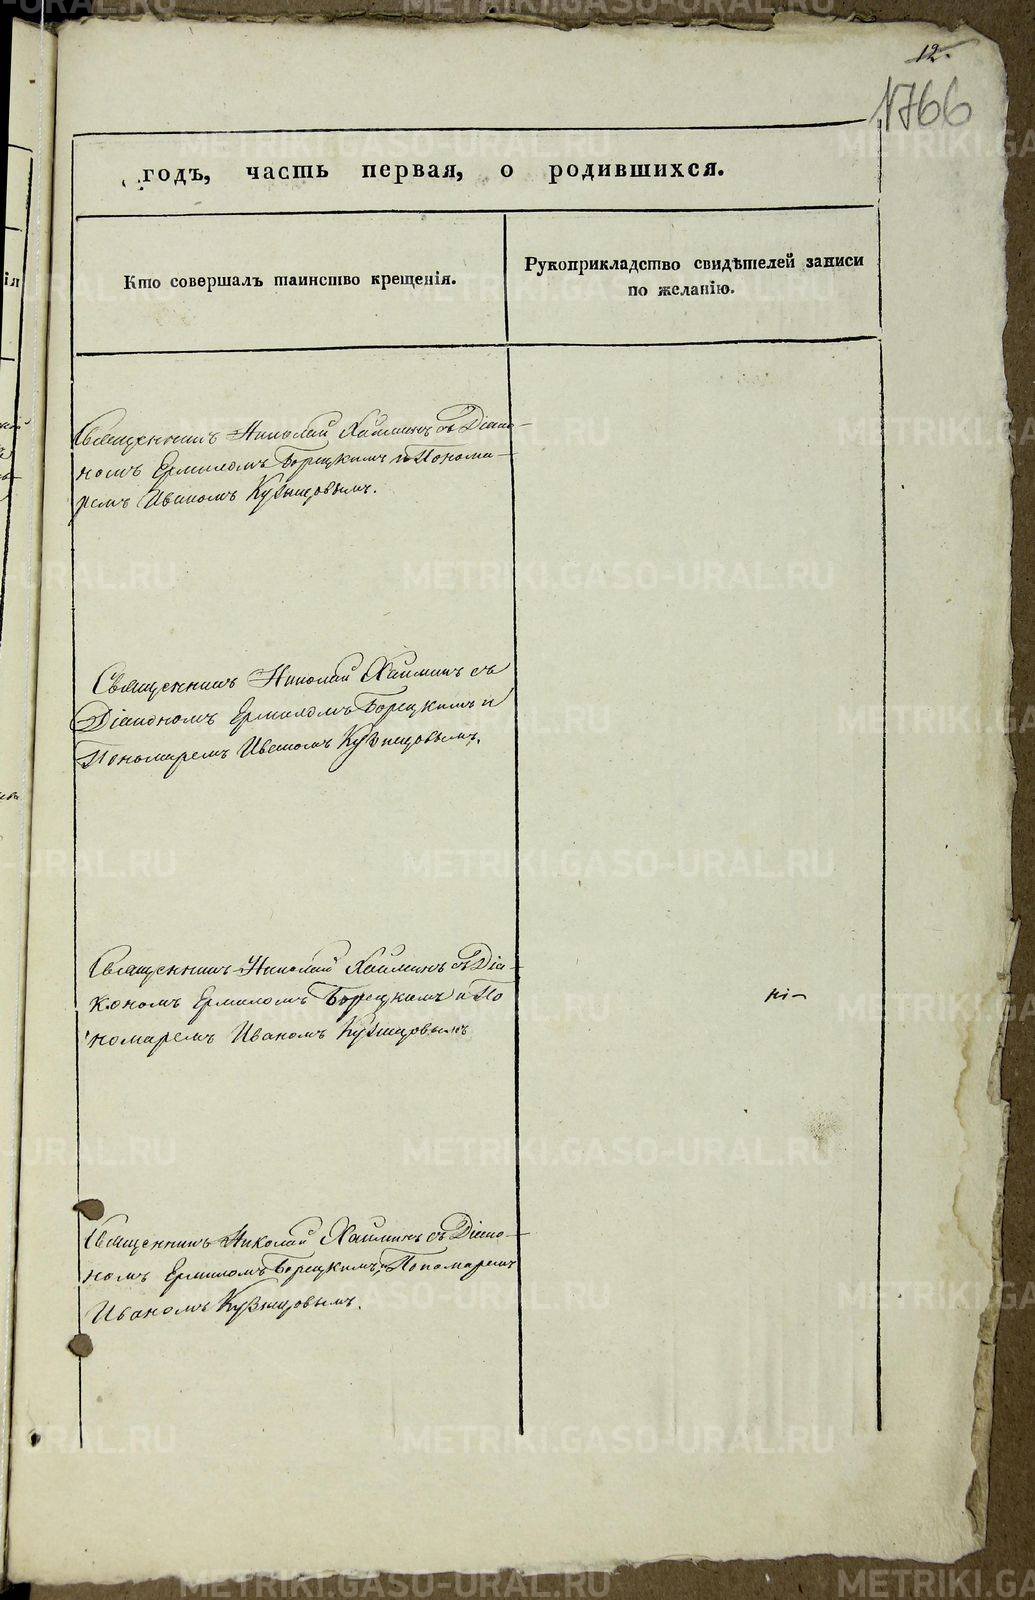 12.
1766
годъ, часть первая, о родившихся.
Кто совершалъ таинство крещенія.
Рукоприкладство свидѣтелей записи
по желанію.
Священникъ Николай Хайминъ съ Діако-
номъ Ермиломъ Борецкимъ и Понома-
ремъ Иваномъ Кузнецовымъ.
Священникъ Николай Хайминъ съ
Діакономъ Ермиломъ Борецкимъ и
Пономаремъ Иваномъ Кузнецовымъ.
Священникъ Николай Хайминъ съ Діа-
кономъ Ермиломъ Борецкимъ и По
номаремъ Иваномъ Кузнецовымъ
Священникъ Николай Хайминъ съ Діако-
номъ Ермиломъ Борецкимъ, и Пономаремъ
Иваномъ Кузнецовымъ.
METRIKI.GASO-URAL.RU